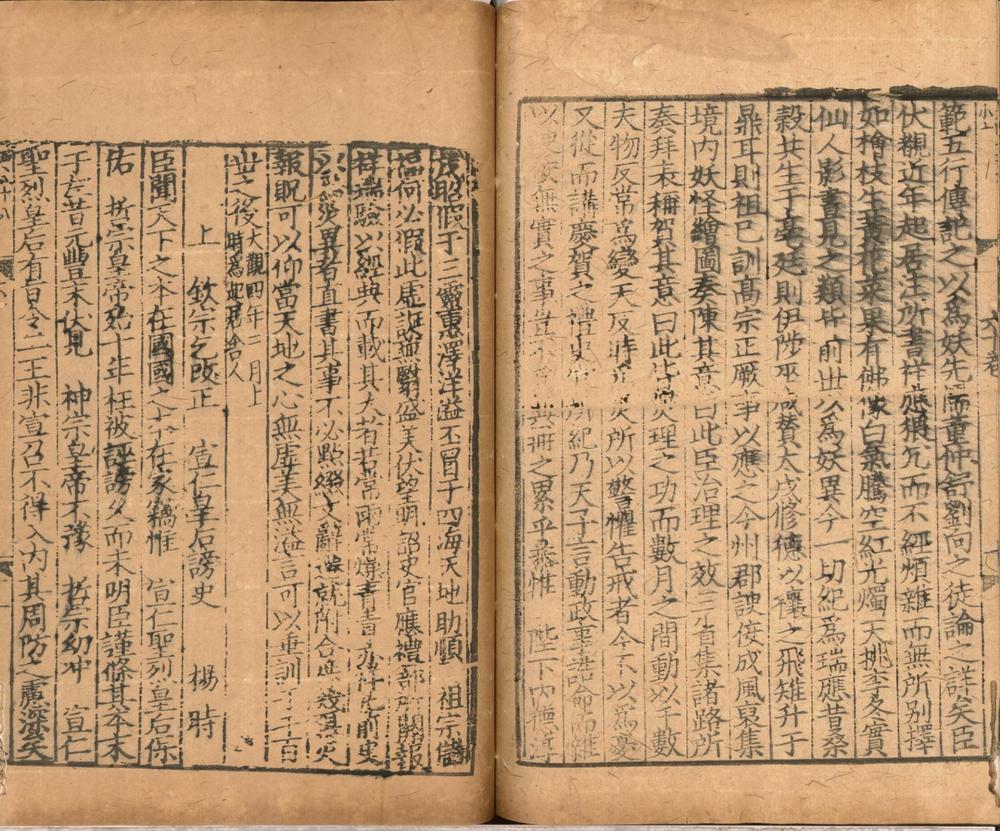 範五行傳記之以為妖先儒董仲舒劉向之徒論之詳矣臣
伏觀近年起居注所書祥應猥冗而不經煩雜而無所別擇
如檜枝生黃花菜果有佛像白氣騰空紅光燭天桃李冬實
仙人影晝見之類皆前世以為妖異今一切紀為瑞應昔桑
榖共生于亳廷則伊陟巫咸贊太戊修德以禳之飛雉升于
鼎耳則祖巳訓高宗正厥事以應之今州郡諛佞成風裒集
境內妖怪繪圖奏陳其意曰此臣治理之效三省集諸路所
奏拜表稱賀其意曰此皆燮理之功而數月之間動以千數
夫物反常為變天反時為災所以警懼告戒者今不以為憂
又從而講慶賀之禮史官所紀乃天子言動政事誥命而雜
以無實之事豈不典冊之累乎恭惟 陛下內德
茂昭假于三靈惠澤洋溢丕冒于四海天地助順 祖宗
福何必假此虛誕無益美伏望明詔史官應禮部所關報
祥瑞驗以經典而載其大者若常雨常燠青眚前史
異者直書其事不必點綴文辭附合幾史
報貺可以仰當天地之心無虛美無溢言可以垂訓于千百
世之後大觀四年二月上時為起居舍人
上 欽宗乞改正 宣仁皇后謗史 楊 時
臣聞天下之本在國國之本在家竊惟 宣仁聖烈皇后保
佑 哲宗皇帝九年枉被誣謗久而未明臣謹條其本末
于左昔元豐末 神宗皇帝不豫 哲宗幼冲 宣仁
聖烈皇后有旨令二王非宣召不得入內其周防之慮深矣